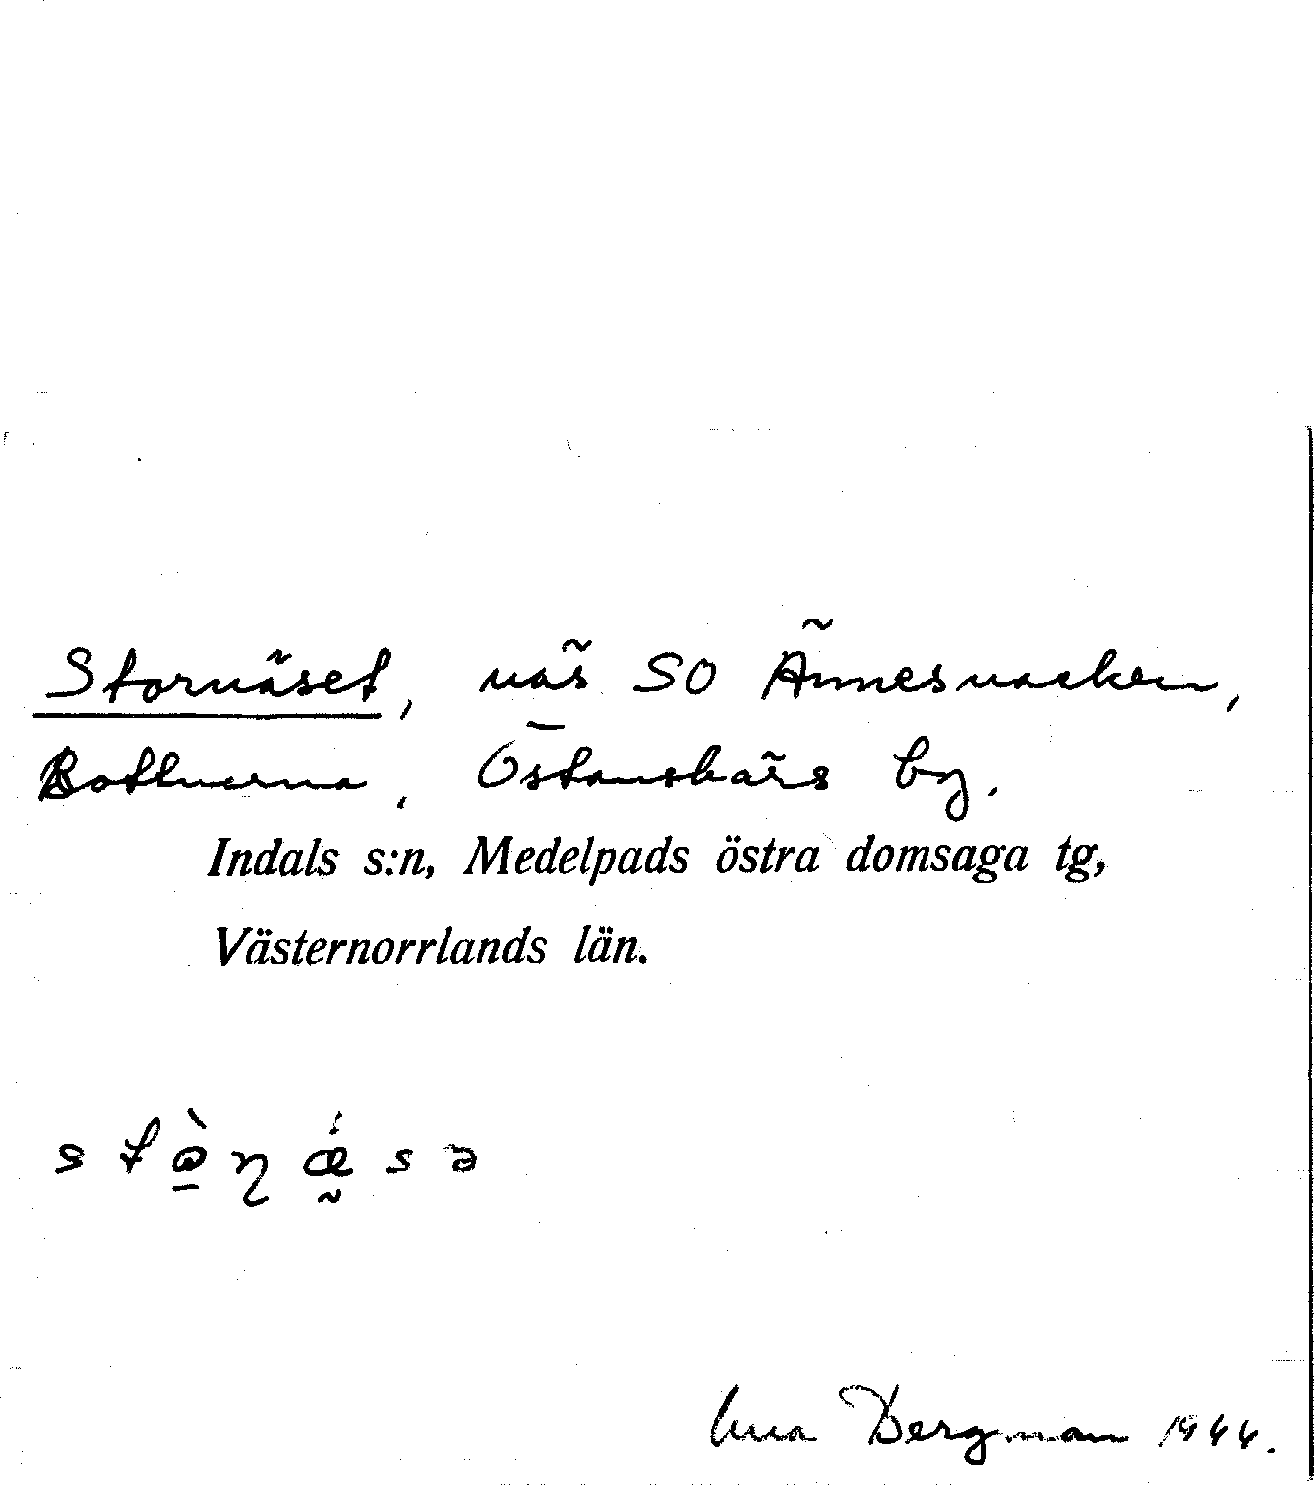 Stornäset, näs SO Ännesnacken,
Bottnerna, Östanskärs by.
Indals s:n, Medelpads östra domsaga tg,
Västernorrlands län.
Bergman 1944.